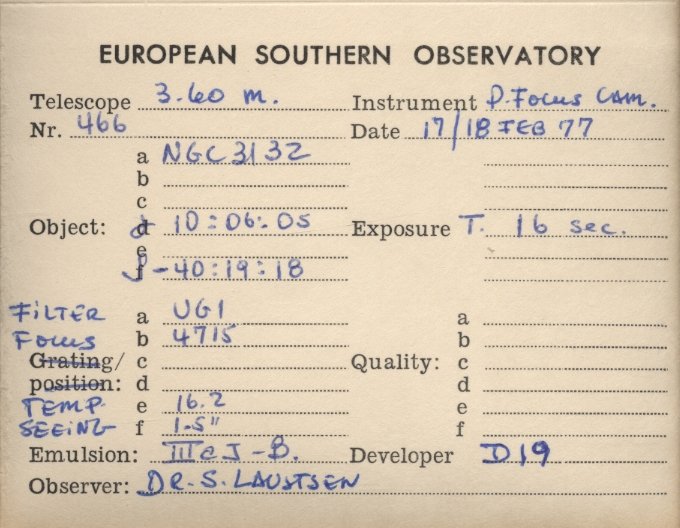 EUROPEAN SOUTHERN OBSERVATORY
Telescope 3.60 m. Instrument P. Focus Cam.
Nr. 466 Date 17/18 FEB 77
a NGC 3132
b
c
Object: d α 10:06:05 Exposure T. 16 sec.
e
f δ -40:19:18
FILTER a UG1 a
Focus b 4715 b
Grating/ c Quality: c
position: d d
TEMP e 16.2 e
SEEING f 1.5" f
Emulsion: III a J-B. Developer D19
Observer: DR. S. LAUSTSEN